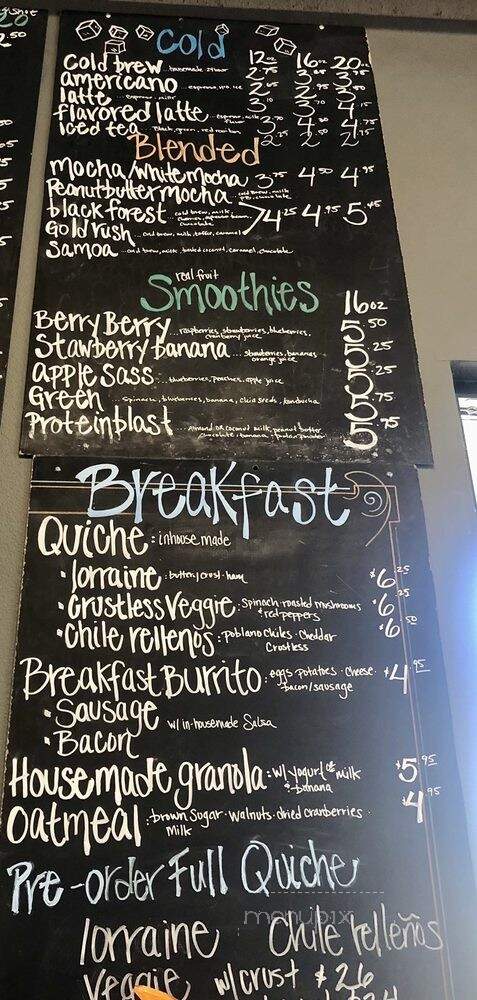 Cold
12oz 16oz 20oz
cold brew...housemade 24hour 2.75
americano...espresso, H2O, ice
latte...espresso, milk 3.10 3.70
flavored latte...espresso, milk, flavor 3.70 4 4.75
iced tea...Black, green, red rooibos 2.50
Blended
mocha/white mocha 3.75 4.50 4.95
Peanutbutter mocha...cold brew, milk, PB, chocolate
black forest...cold brew, milk, cherries, chocolate 4.25 4.95 5.45
Gold rush...cold brew, milk, toffee, caramel
Samoa...cold brew, milk, toasted coconut, caramel, chocolate
real fruit
Smoothies
16oz
Berry Berry...raspberries, strawberries, blueberries, cranberry juice 5.50
Stawberry banana...strawberries, bananas, orange juice 5.25
apple sass...blueberries, peaches, apple juice 5.25
Green...spinach, blueberries, banana, chia seeds, kombucha 5.75
Protein blast...almond or coconut milk, peanut butter, chocolate, banana, protein powder 6.75
Breakfast
Quiche: inhouse made
• lorraine: buttery crust · ham $6.25
• Crustless Veggie: spinach · roasted mushrooms & red peppers $6.25
• Chile rellenos: poblano chiles · cheddar $6.50
Crustless
Breakfast Burrito: eggs · potatoes · cheese · bacon/sausage $4.95
• Sausage w/ in-housemade Salsa
• Bacon
Housemade granola: w/ yogurt or milk & banana $5.95
Oatmeal: brown Sugar · walnuts · dried cranberries · milk $4.95
Pre-order Full Quiche
menupix
lorraine Chile relleños
Veggie w/crust $26